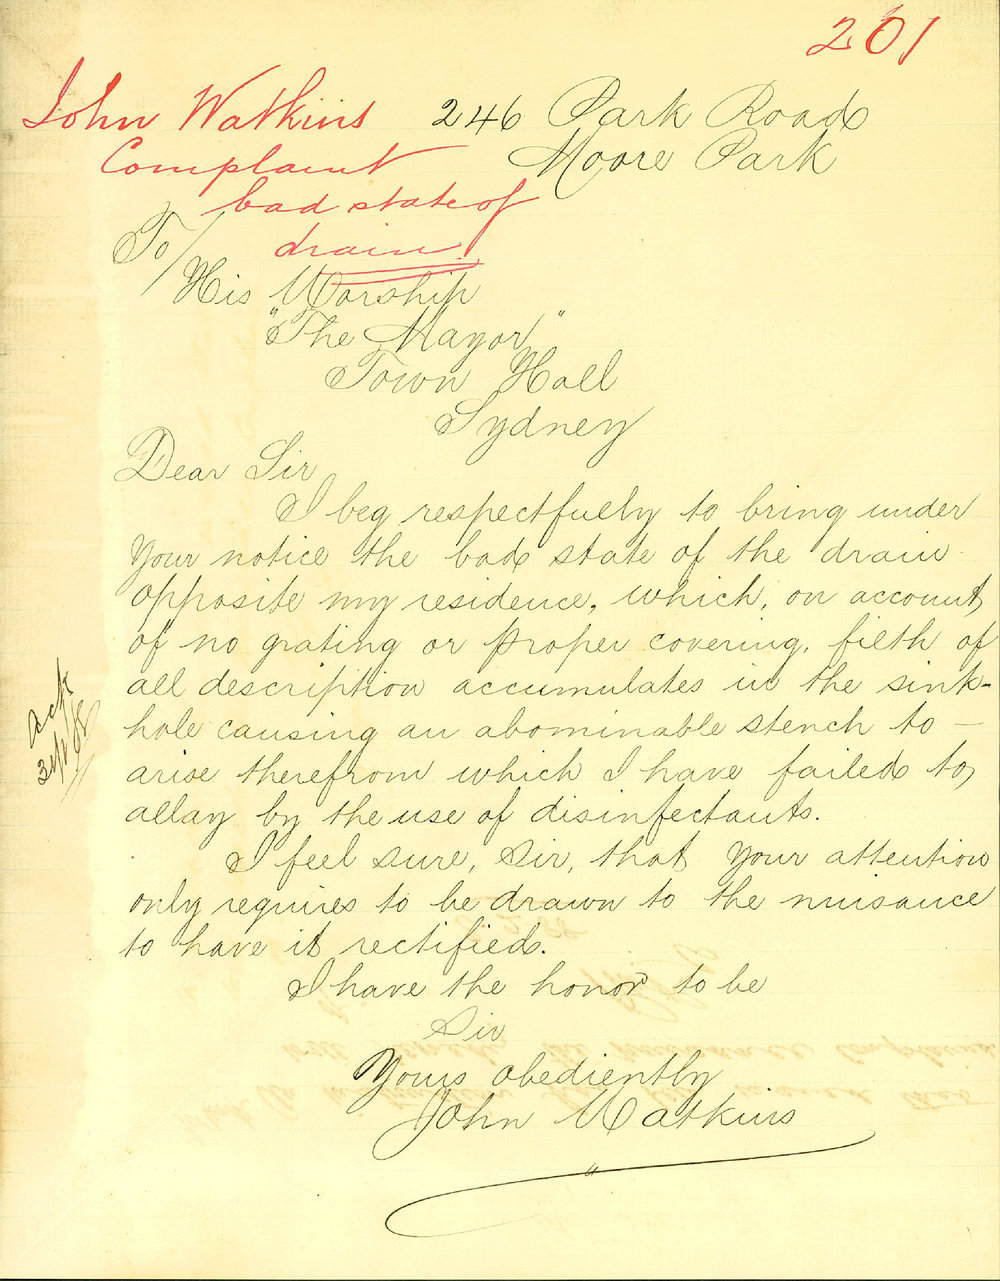 201
John Watkins
Complaint
bad state of
drain
246 Park Road
Moore Park
To/
His Worship
"The Mayor"
Town Hall
Sydney
Dear Sir
I beg respectfully to bring under
Your notice the bad state of the drain
opposite my residence, which, on account
of no grating or proper covering, filth of
all description accumulates in the sink-
hole causing an abominable stench to —
arise therefrom which I have failed to,
allay by the use of disinfectants.
I feel sure, Sir, that your attention
only requires to be drawn to the nuisance
to have it rectified.
I have the honor to be
Sir
Yours obediently
John Watkins
Ack